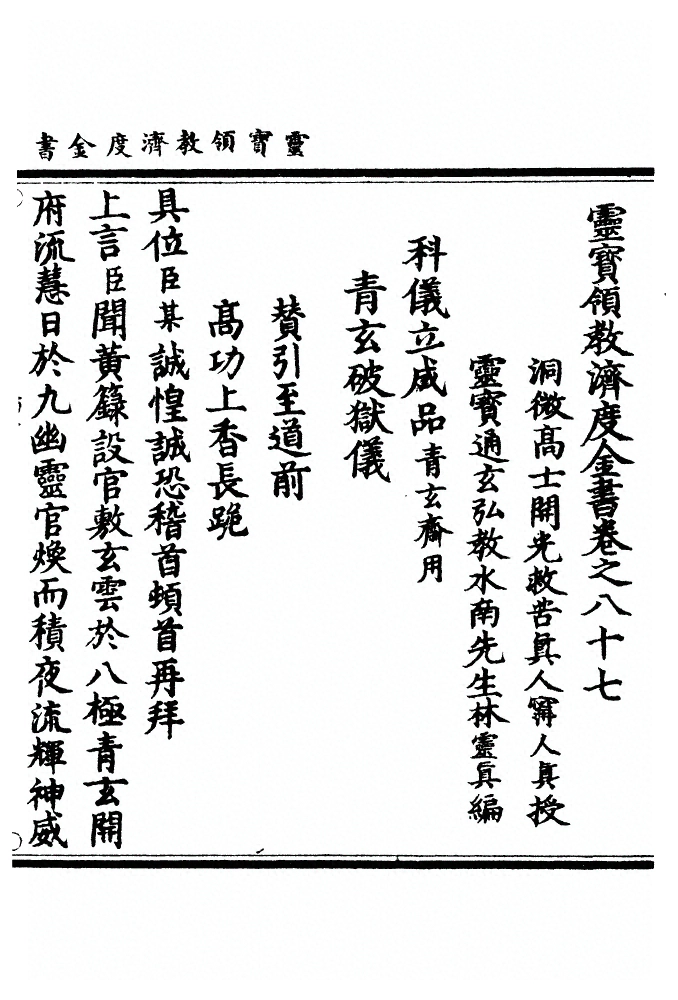 靈寶領教濟度金書
靈寶領教濟度金書卷之八十七
洞微高士開光救苦眞人甯人眞授
靈寶通玄弘教水南先生林靈眞編
科儀立成品青玄齋用
青玄破獄儀
贊引至道前
高功上香長跪
具位臣某誠惶誠恐稽首頓首再拜
上言臣聞黃籙設官敷玄雲於八極青玄開
府流慧日於九幽靈官煥而積夜流輝神威